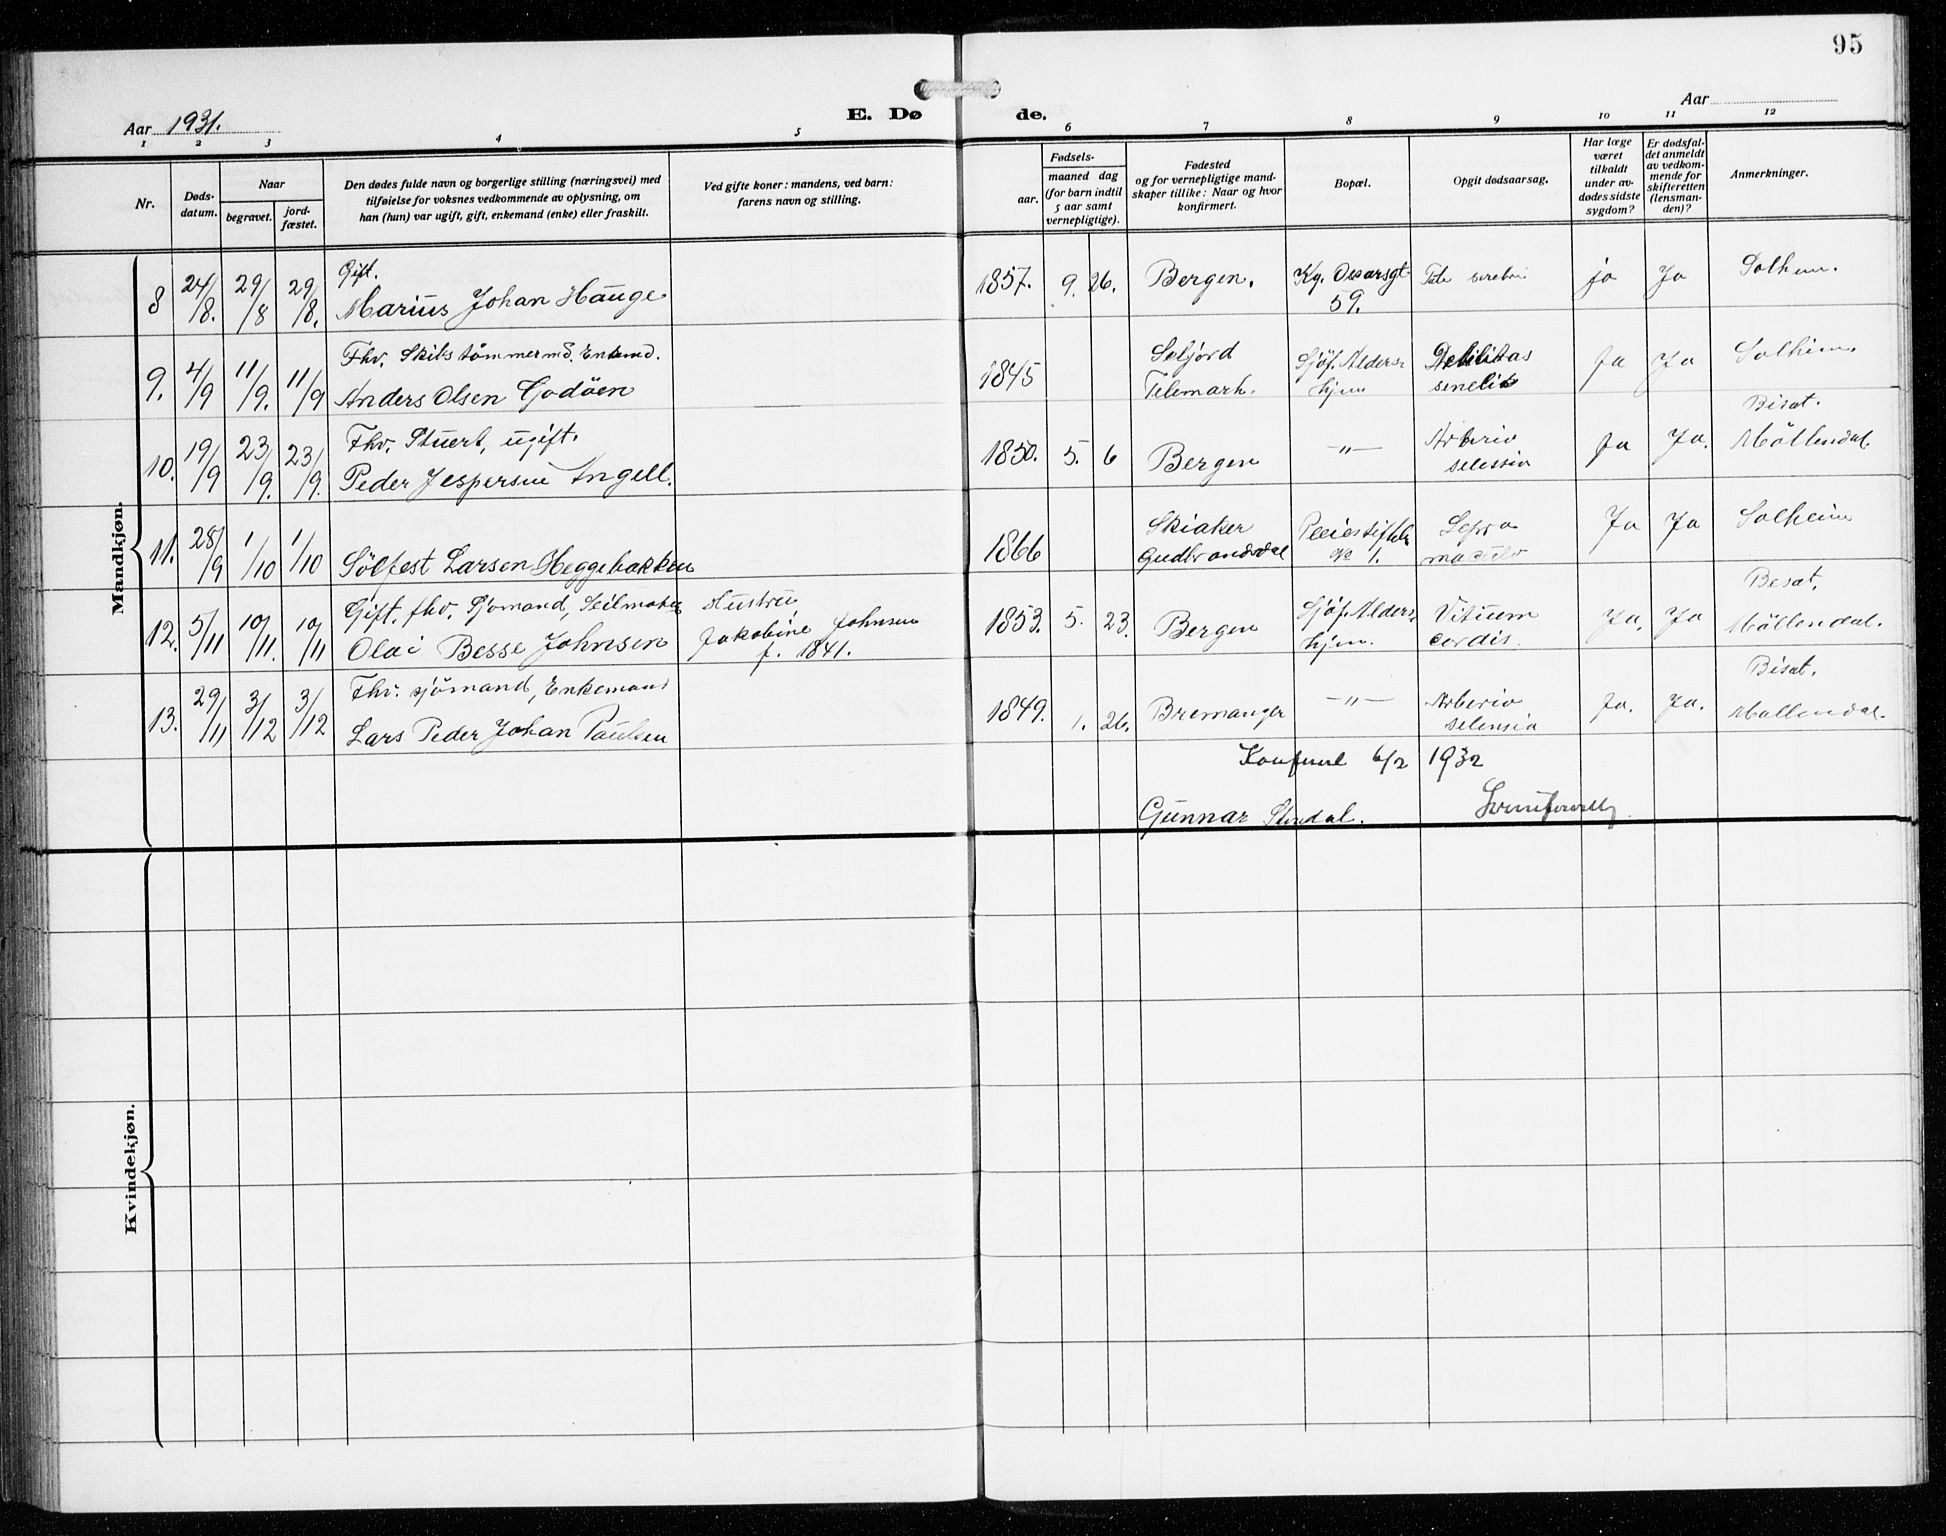 95
Aar 1931.
E. Dø de.
Aar
1 2 3 4 5 6 7 8 9 10 11 12
Nr.
Døds-
datum.
Naar
begravet.
jord-
fæstet.
Den dødes fulde navn og borgerlige stilling (næringsvei) med
tilføielse for voksnes vedkommende av oplysning, om
han (hun) var ugift, gift, enkemand (enke) eller fraskilt.
Ved gifte koner: mandens, ved barn:
farens navn og stilling.
Fødsels-
aar. maaned dag
(for barn indtil
5 aar samt
vernepligtige).
Fødested
og for vernepligtige mand-
skaper tillike: Naar og hvor
konfirmert.
Bopæl.
Opgit dødsaarsag.
Har læge
været
tilkaldt
under av-
dødes sidste
sygdom?
Er dødsfal-
det anmeldt
av vedkom-
mende for
skifteretten
(lensman-
den)?
Anmerkninger.
Mandkjøn.
Gift.
8 24/8. 29/8 29/8. Marius Johan Hauge 1857. 9. 26. Bergen. Kg. Oscarsgt 59. jo Ja Solheim.
Fhv. Skibstömmermd. Enkemd.
9. 4/9 11/9. 11/9 Anders Olsen Godöen 1845 Seljord Telemark. Sjöf. Alders-hjem Debilitas senelis Ja Ja Solheim.
Fhv. Stuert, ugift.
10. 19/9 23/9. 23/9. Peder Jespersen Angell. 1850. 5. 6 Bergen —"— Ja Ja. Bisat. Möllendal
11. 28/9 1/10 1/10 Sölfest Larsen Heggebakken 1866 Skiaker Gudbrandsdal 1. Lepra Ja Ja Solheim
Gift. fhv. Sjömand, Seilmaker Hustru
12. 5/11 10/11. 10/11 Olai Besse Johnsen Jakobine Johnsen f. 1841. 1853. 5. 23. Bergen Sjöf. Alders-hjem. Vitium cordis. Ja. Ja Besat. Möllendal.
Fhv. sjömand, Enkemand
13. 29/11 3/12 3/12 Lars Peder Johan Paulsen 1849. 1. 26. Bremanger —"— Ja. Ja. Bisat. Möllendal.
Konferert 6/2 1932
Gunnar Stendal.
Kvindekjøn.